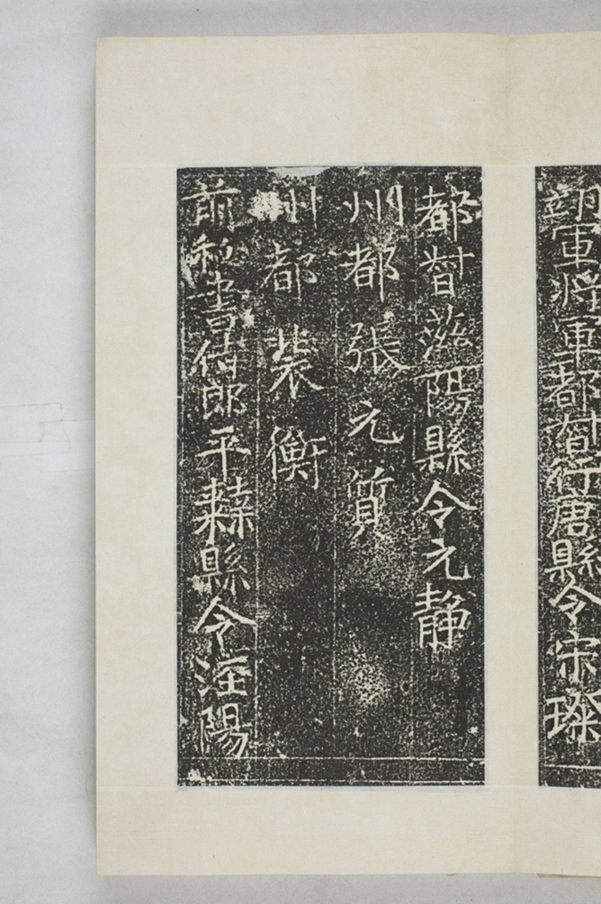 翊軍將軍都督行唐縣令宋璨
都督滋陽縣令元静
州都張元質
州都裴衡
前秘書侍郎平棘縣令涇陽